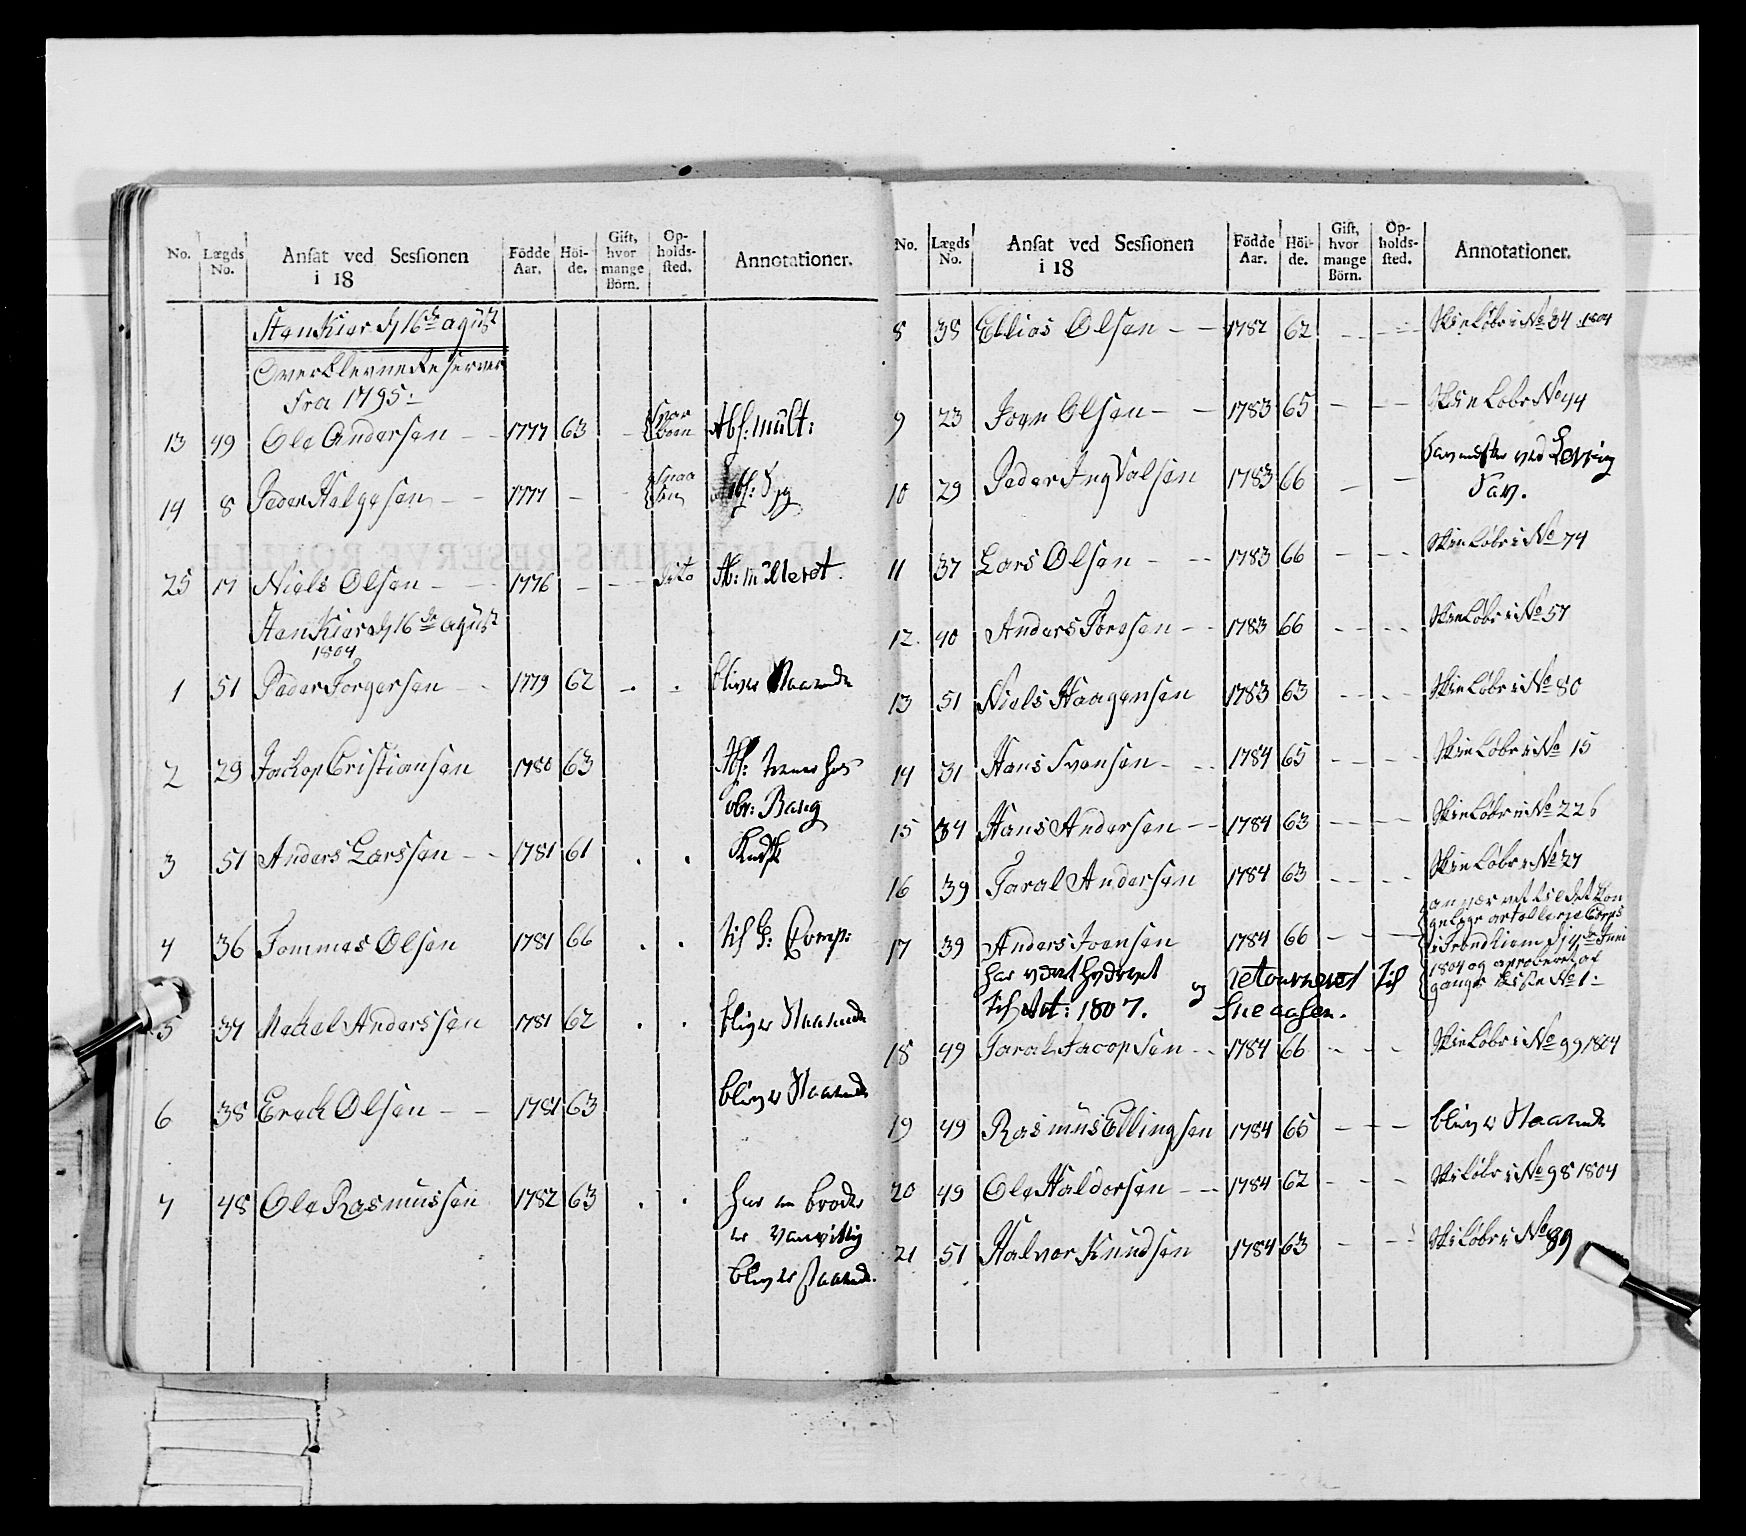 No. Lægds No. Ansat ved Sessionen i 18 Födde Aar. Höi-de. Gift, hvor mange Börn. Op-holds-sted. Annotationer.
StenKier d 16de agust
Overblevne Reserver
fra 1795:
13 49 Ole Andersen - - 1777 63 - Abs: mült:
14 8 Peder Helgesen - - 1777 - -
25 17 Niels Olsen - - 1776 - - dito
StenKier d 16de agust
1804
1 51 Peder Torgersen - - 1779 62 . . bliver Staaende
2 29 Jackop Cristiansen 1780 63
obr: Bang
3 51 Anders Larssen - - 1781 61 . .
4 36 Tommas Olsen 1781 66 . . til Comp:
5 37 Mekal Anderssen 1781 62 . . bliver Staaende
6 38 Ereck Olsen - - 1781 63 bliver Staaende
7 48 Ole Rasmussen 1782 63 . . har en broder
er vanvittig
bliver staaende.
No. Lægds No. Ansat ved Sessionen i 18 Födde Aar. Höi-de. Gift, hvor mange Börn. Op-holds-sted. Annotationer.
8 38 Ellias Olsen - - 1782 62 - - Skieløber No 34 1804
9 23 Joen Olsen - - 1783 65 - - Skieløber No 44
10 29 Peder Ingvalsen 1783 66 - -
11 37 Lars Olsen - - 1783 66 - - Skieløber No 74
12 40 Anders Toresen - - 1783 66 - - Skieløber No 57
13 51 Niels Haagensen 1783 63 - - Skieløber No 80
14 31 Hans Svensen - - 1784 65 - - Skieløber No 15
15 34 Hans Andersen - - 1784 63 - - Skieløber No 226
16 39 Taral Andersen 1784 63 - - Skieløber No 27
17 39 Anders Joensen 1784 66 - -
gelige artollerie Corps
i Trondhiem d Juni
1804 og aproberet af
No 1:
har været hydret og retourneret til
til Art: 1807. Sneaasen.
18 49 Taral Jacopsen - - 1784 66 - - Skieløber No 99 1804
19 49 Rasmus Ellingsen 1784 65 - - bliver Staaende
20 49 Ole Haldorsen - - 1784 62 - - Skiløber No 98 1804
21 51 Halvor Knudsen 1784 63 - - Skiløber No 89